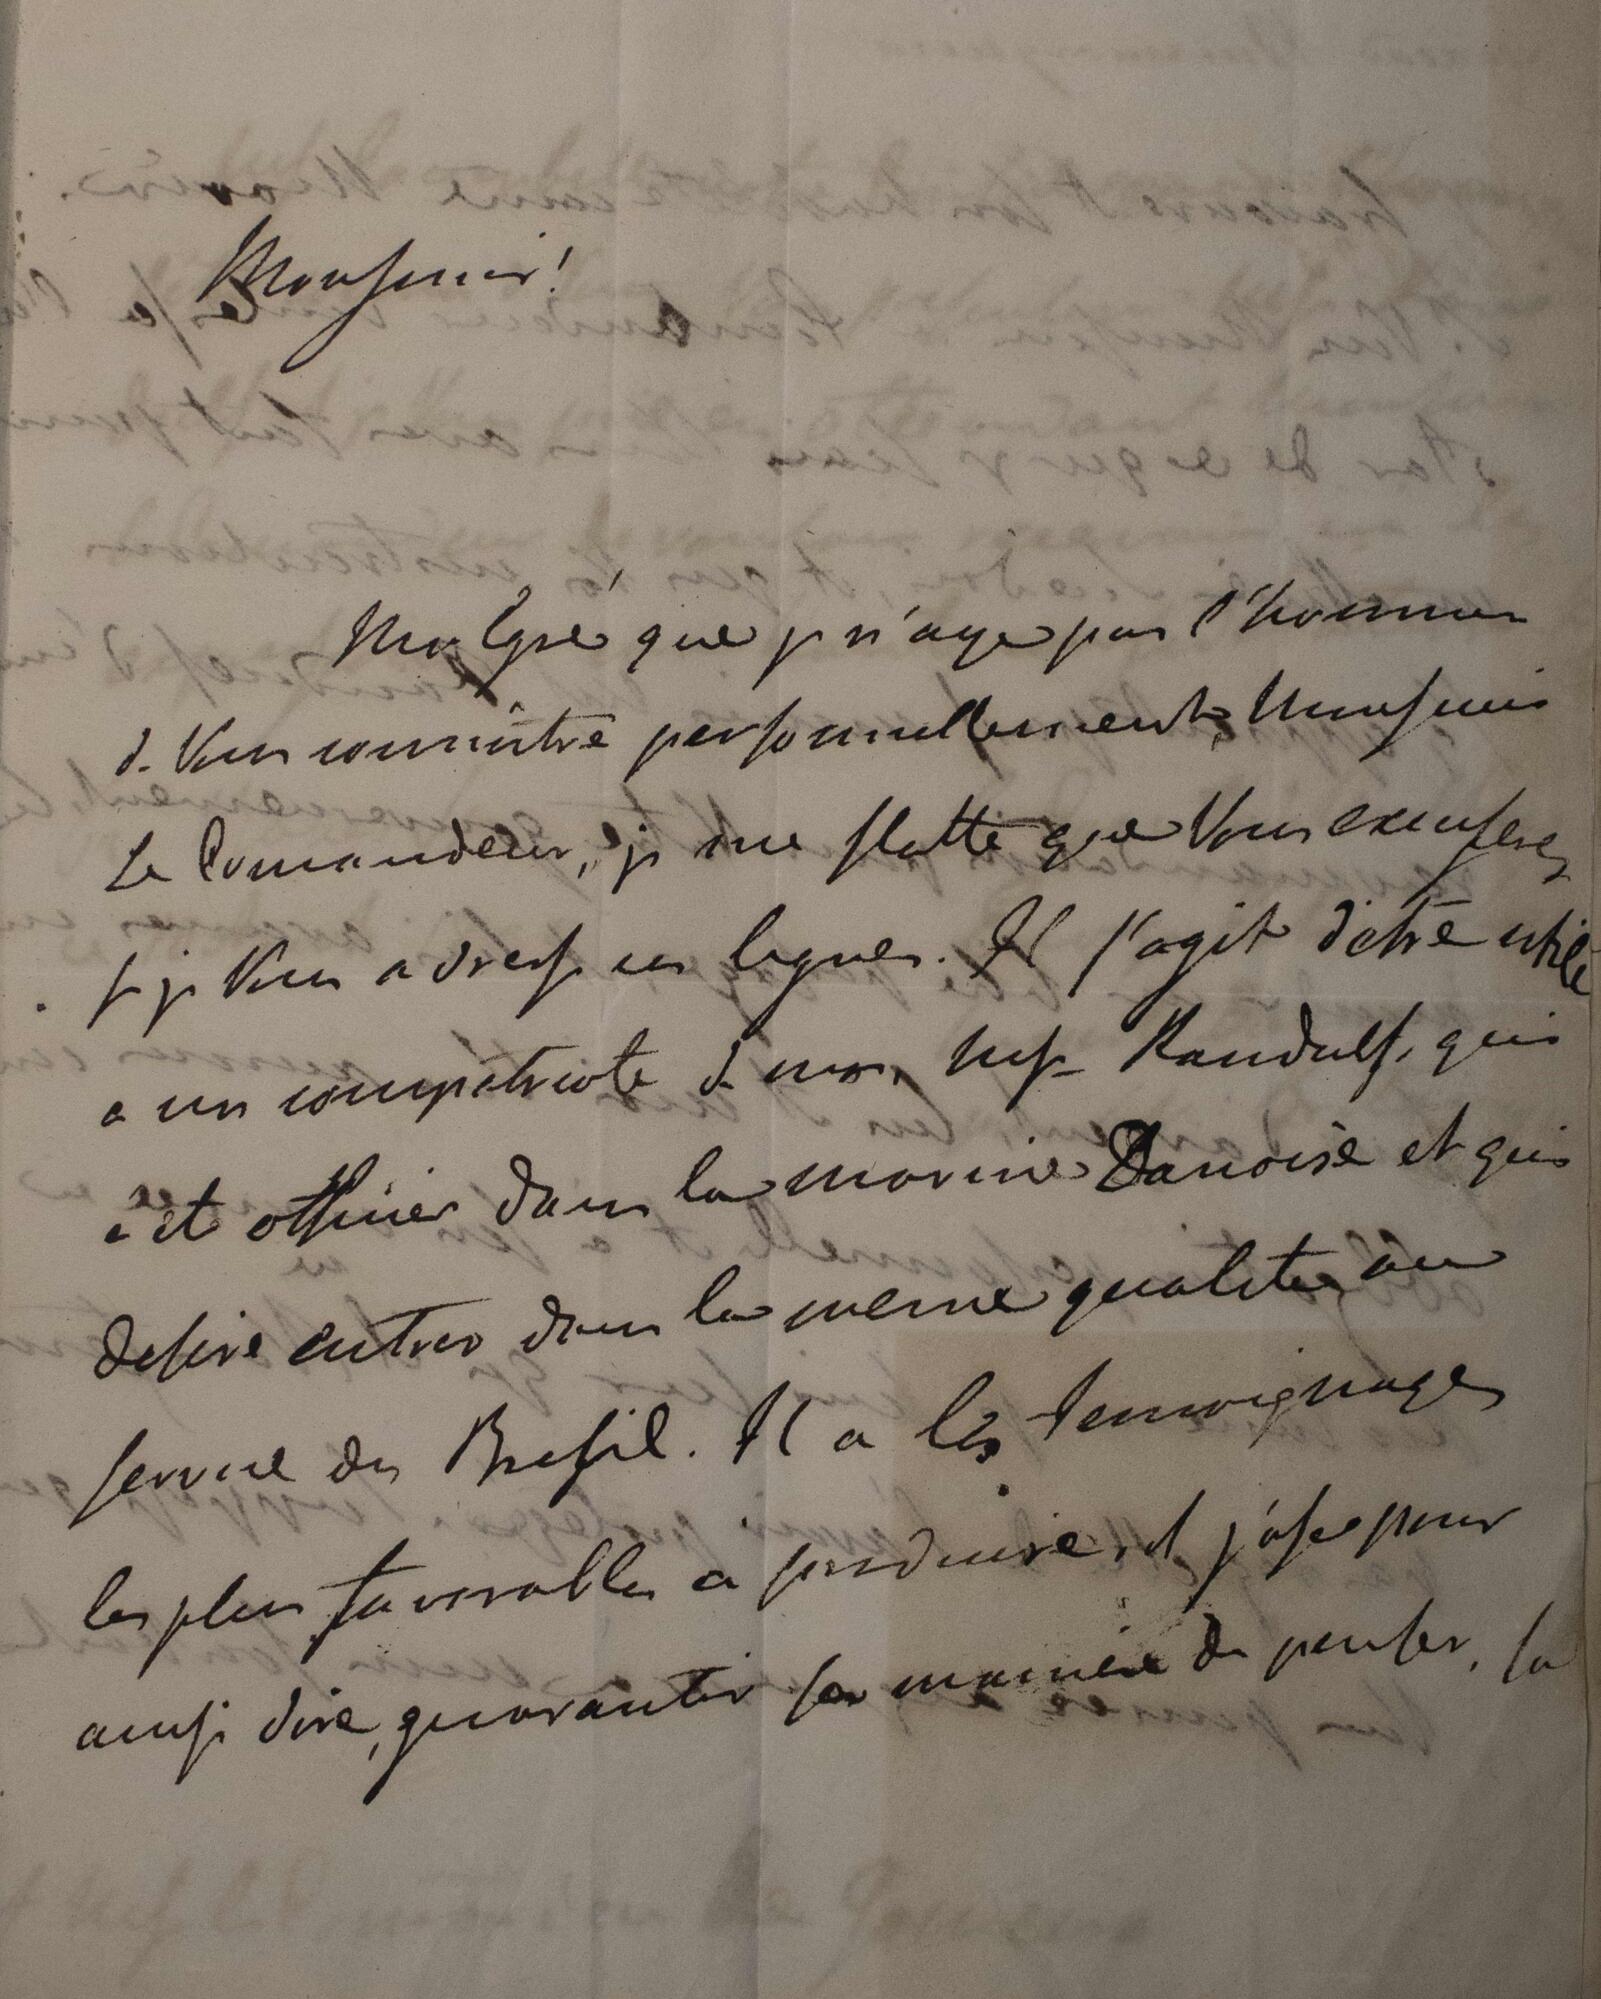 Monsieur!
Malgré que je n'aye pas l'honneur
de Vous connaître personnellement, Monsieur
le Comandeur, je me flatte que Vous excuserez
si je Vous adresse ces lignes. Il s'agit d'être utile
a un compatriote de moi, Mr Randulff, qui
a été officier dans la marine Danoise et qui
desire entrer dans la meme qualité au
service du Bresil. Il a les temoignages
les plus favorables à produire, et j'ose pour
ainsi dire, guarantir sa manière de penser, sa